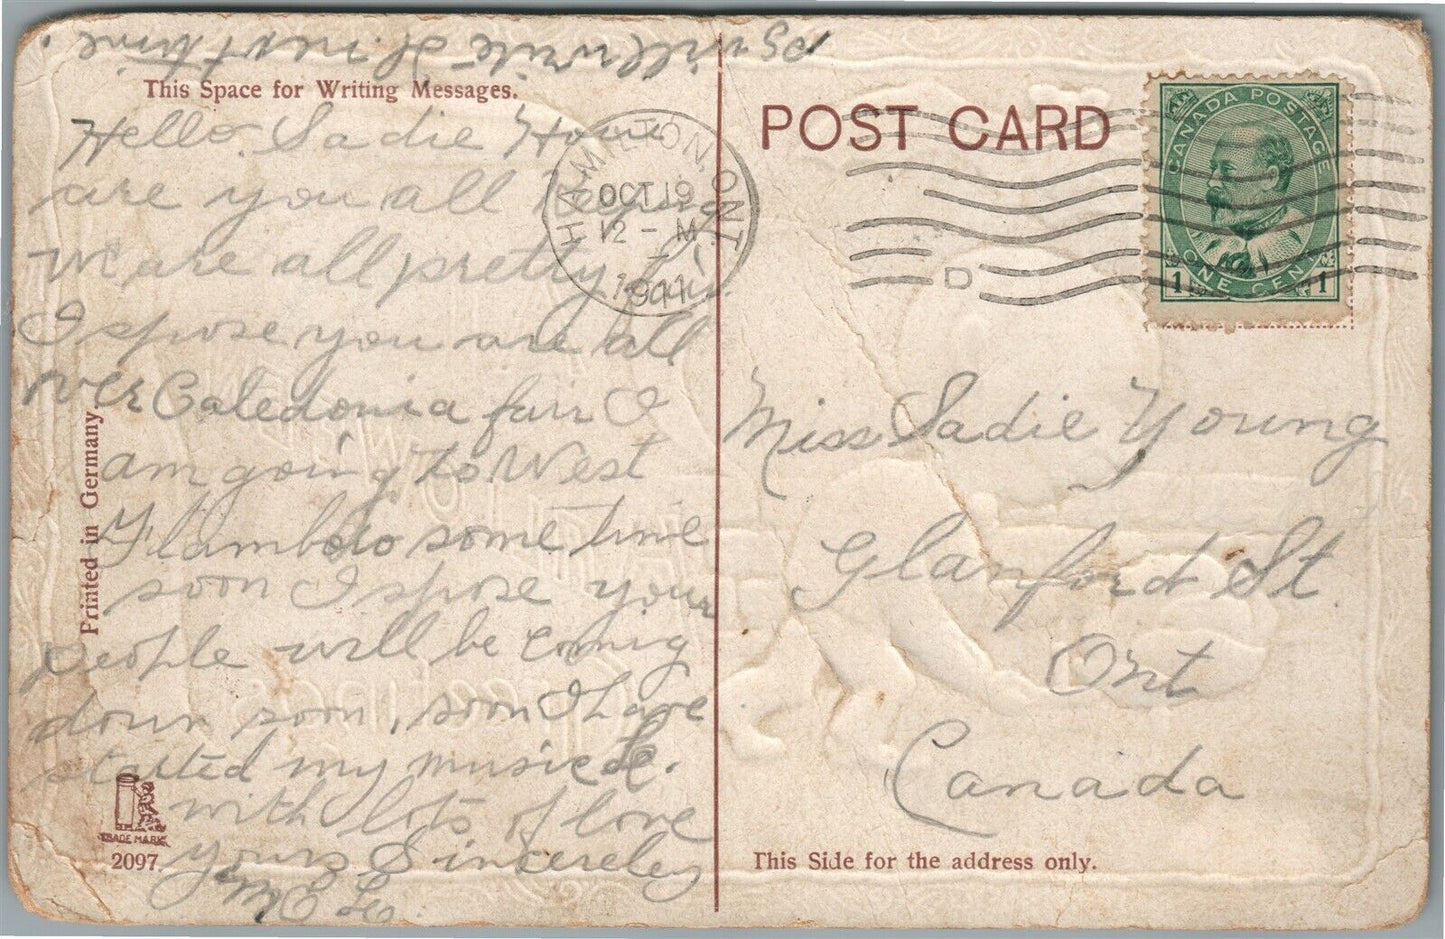 PS will write H. next time.
This Space for Writing Messages.
Hello Sadie How
are you all keeping
we are all pretty
I spose you are all
over Caledonia fair I
am going to West
Flamboro some time
soon I spose your
people will be comig
down soon, soon I have
started my music
with lots of love
yours Sincereley
M E Lee.
Printed in Germany
TRADE MARK
2097.
POST CARD
HAMILTON, ONT.
OCT 19
12 - M
1911
D
CANADA POSTAGE
1 ONE CENT 1
Miss Sadie Young
Glanford St.
Ont
Canada
This Side for the address only.